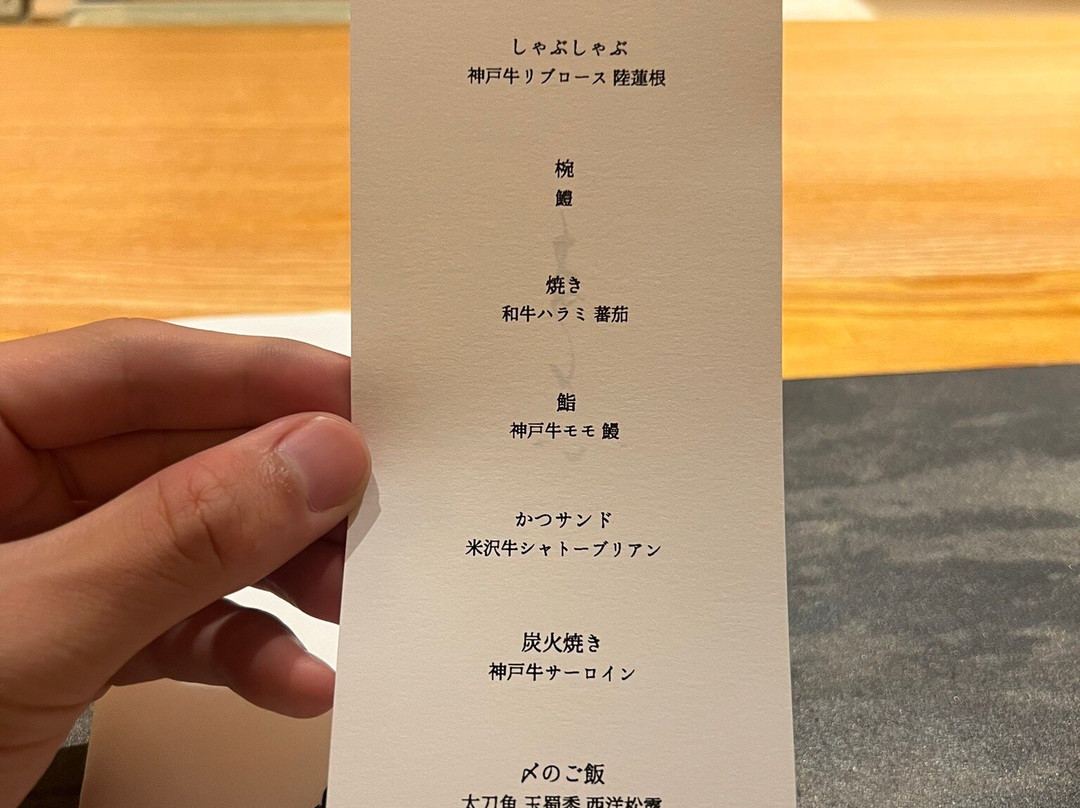 しゃぶしゃぶ
神戸牛リブロース 陸蓮根
椀
鱧
焼き
和牛ハラミ 蕃茄
鮨
神戸牛モモ 鰻
かつサンド
米沢牛シャトーブリアン
炭火焼き
神戸牛サーロイン
〆のご飯
太刀魚 玉蜀黍 西洋松露